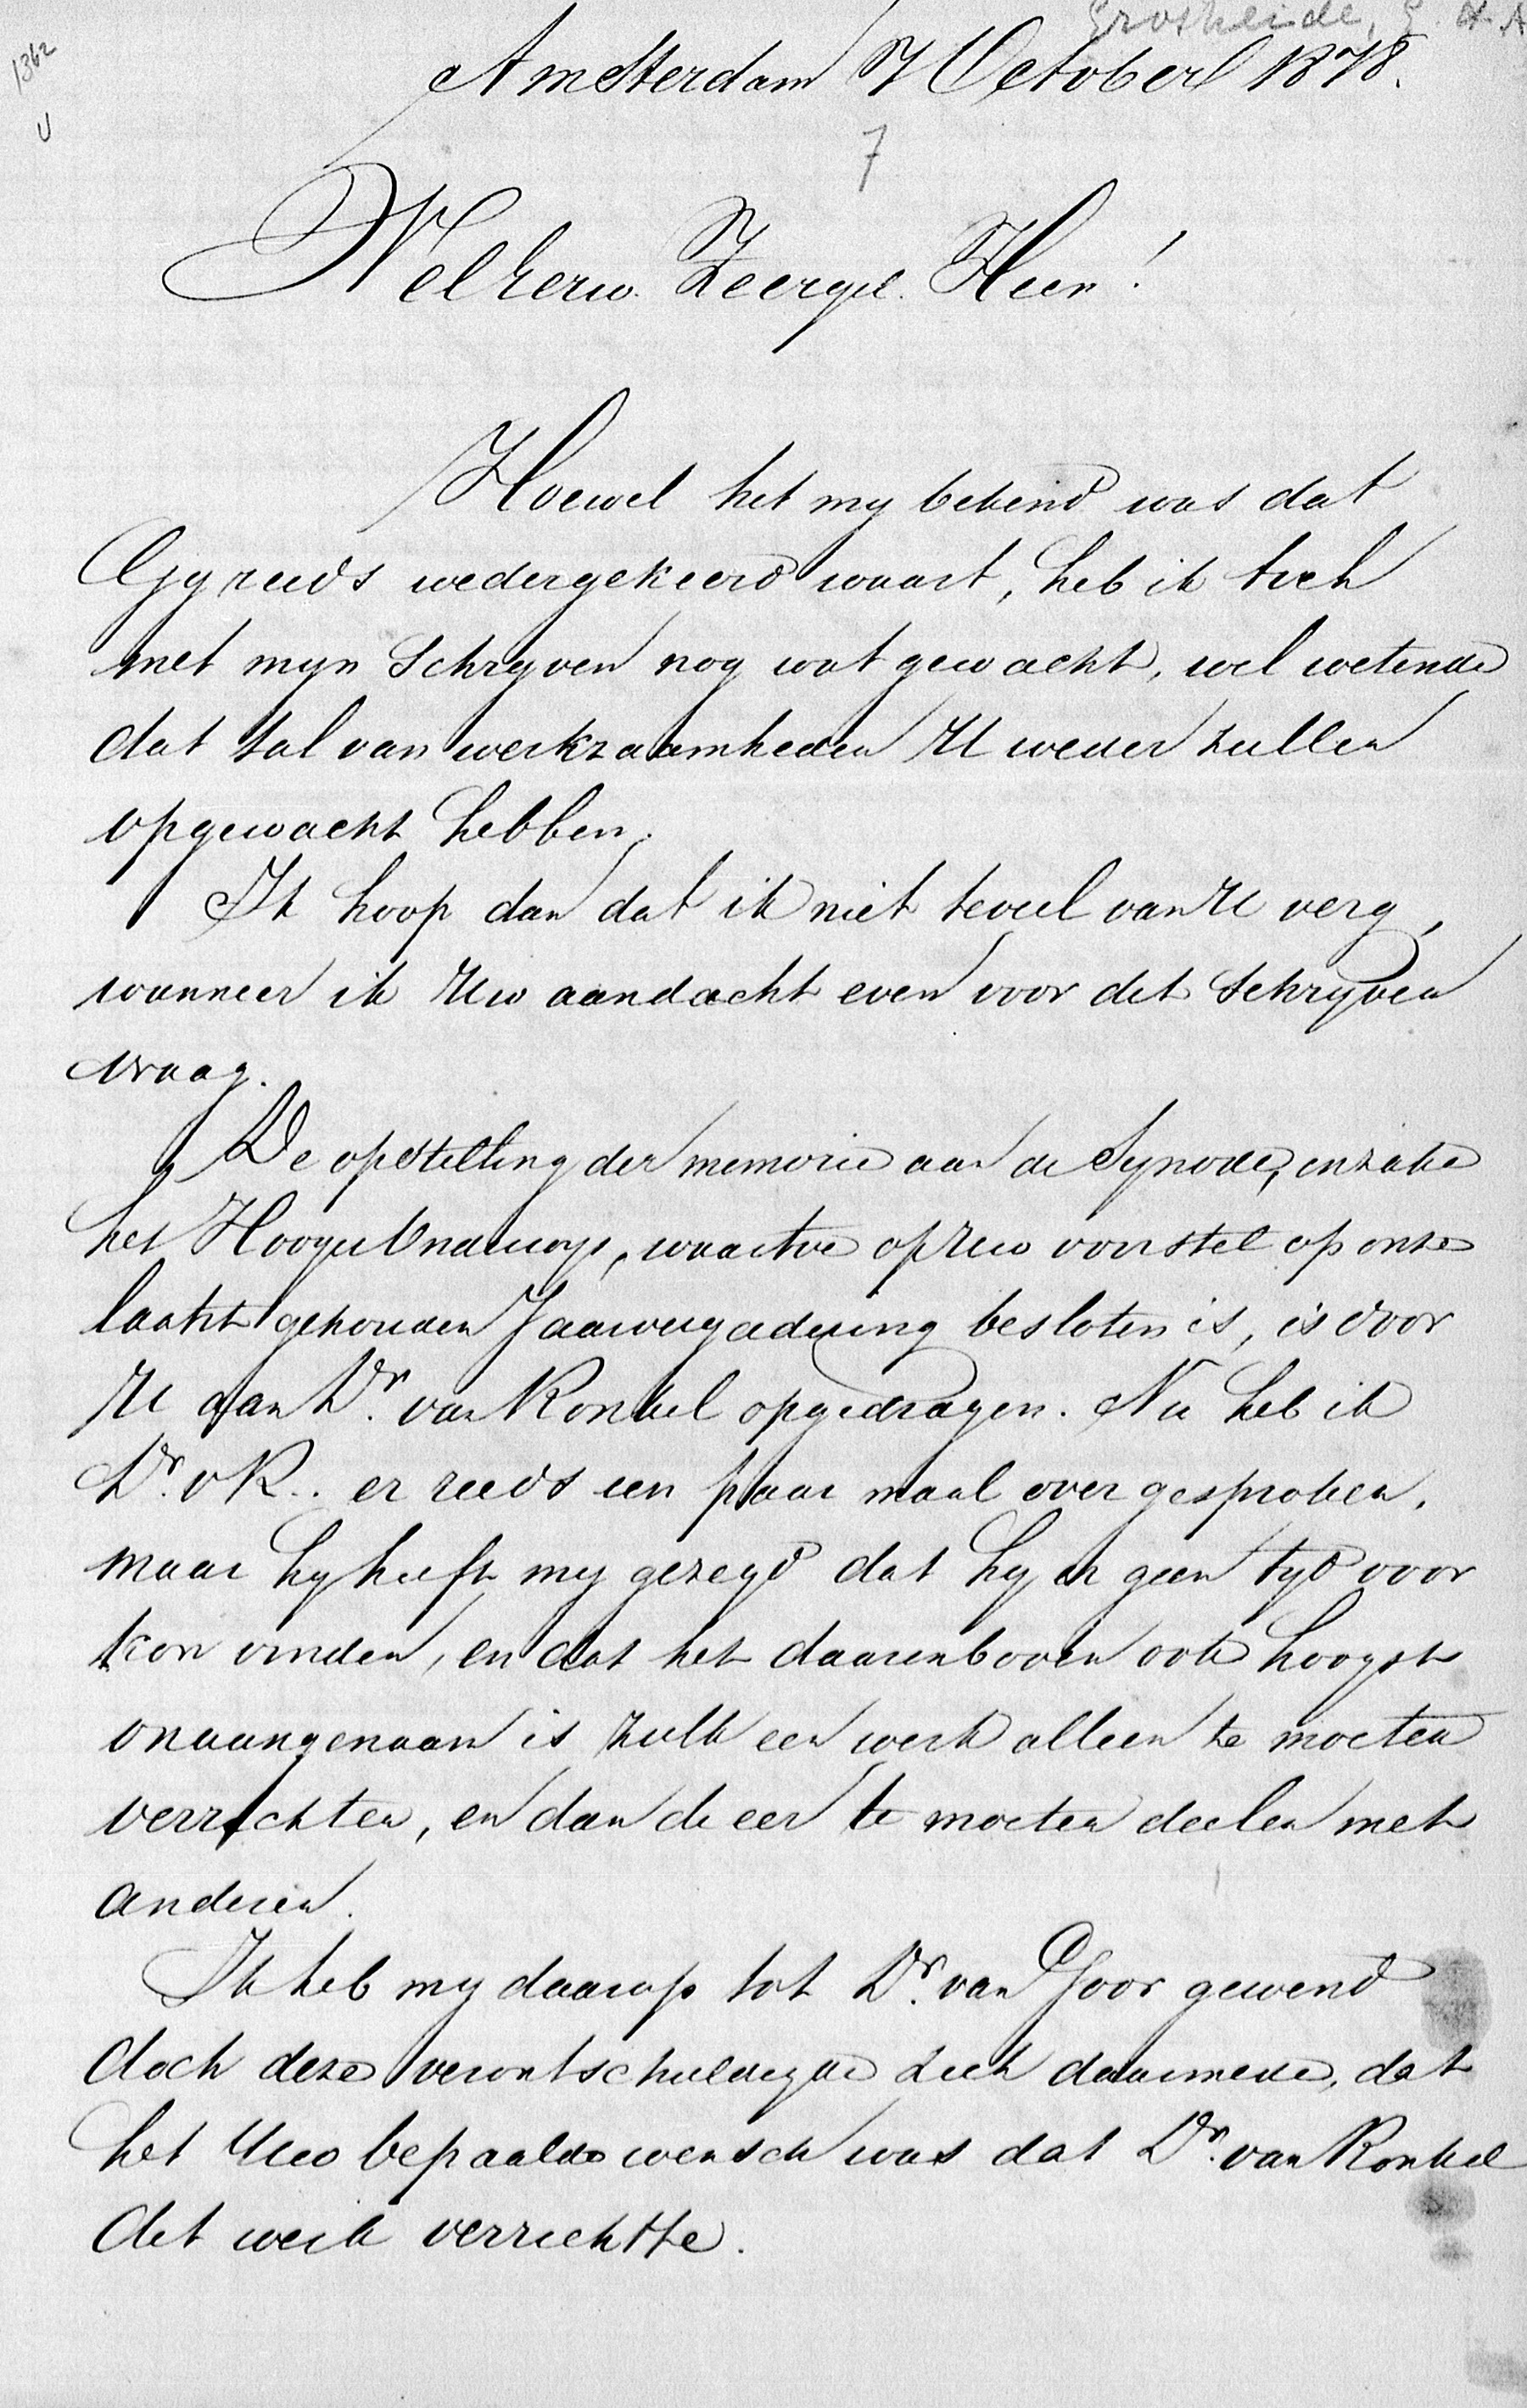 Grosheide, G. H. A
1362
U
Amsterdam 7 October 1878.
7
WelEerw. Zeergel. Heer!
Hoewel het my bekend was dat
Gy reeds wedergekeerd waart, heb ik toch
met myn schryven nog wat gewacht, wel wetende
dat tal van werkzaamheden U weder zullen
opgewacht hebben.
Ik hoop dan dat ik niet teveel van U verg,
wanneer ik Uw aandacht even voor dit schryven
vraag.
De opstelling der memorie aan de Synode, inzake
het Hooger Onderwys, waartoe op Uw voorstel op onze
laatst gehouden Jaarvergadering besloten is, is door
U aan Dr. van Ronkel opgedragen. Nu heb ik
Dr. v R.. er reeds een paar maal over gesproken,
maar hy heeft my gezegd dat hy er geen tyd voor
kon vinden, en dat het daarenboven ook hoogst
onaangenaam is zulk een werk alleen te moeten
verrichten, en dan de eer te moeten deelen met
anderen.
Ik heb my daarop tot Dr. van Goor gewend
doch deze verontschuldigde zich daarmede, dat
het Uw bepaalde wensch was dat Dr. van Ronkel
dit werk verrichtte.